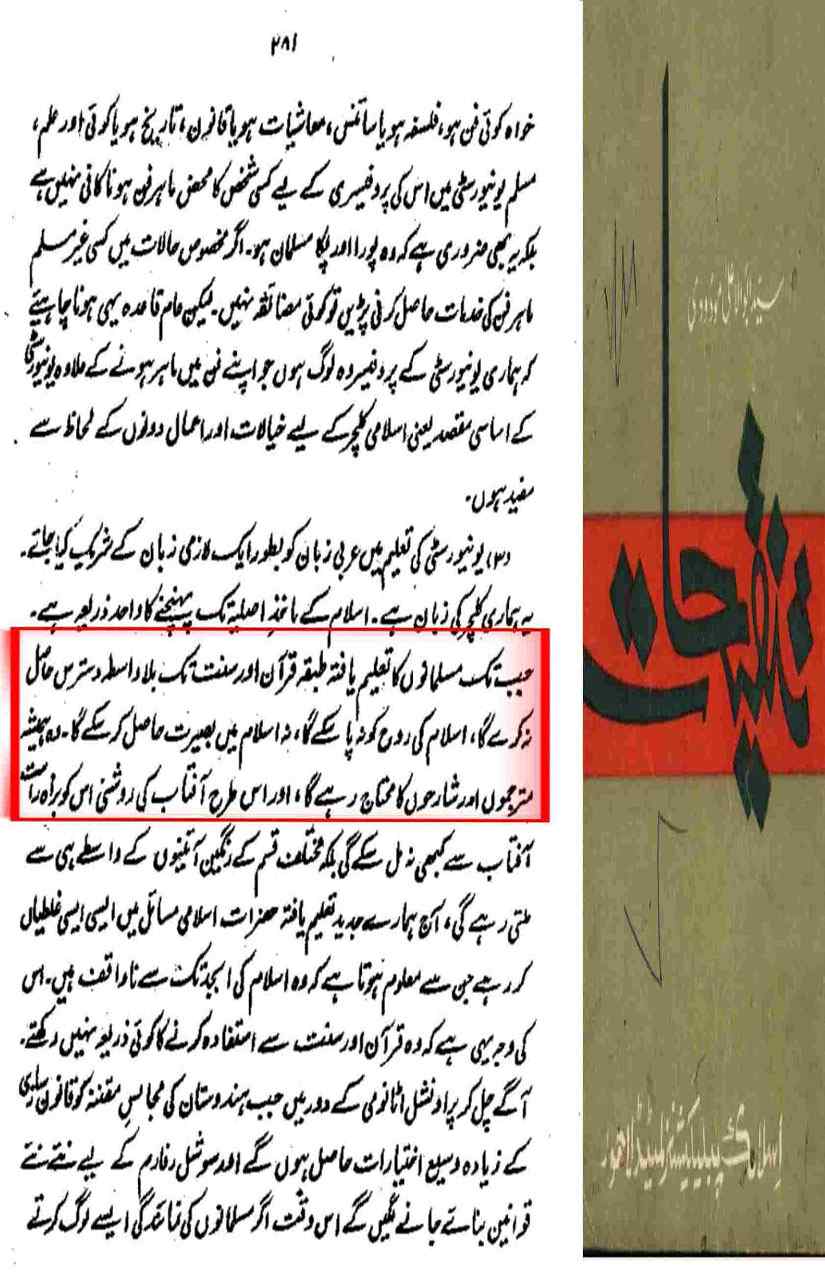 ۲۸۱
خواہ کوئی فن ہو، فلسفہ ہو یا سائنس، معاشیات ہو یا قانون، تاریخ ہو یا کوئی اور علم،
مسلم یونیورسٹی میں اس کی پروفیسری کے لیے کسی شخص کا محض ماہر فن ہونا کافی نہیں ہے
بلکہ یہ بھی ضروری ہے کہ وہ پورا اور پکا مسلمان ہو۔ اگر مخصوص حالات میں کسی غیر مسلم
ماہر فن کی خدمات حاصل کرنی پڑیں تو کوئی مضائقہ نہیں۔ لیکن عام قاعدہ یہی ہونا چاہیئے
کہ ہماری یونیورسٹی کے پروفیسر وہ لوگ ہوں جو اپنے فن میں ماہر ہونے کے علاوہ یونیورسٹی
کے اساسی مقصد یعنی اسلامی کلچر کے لیے خیالات اور اعمال دونوں کے لحاظ سے
مفید ہوں۔
(۳) یونیورسٹی کی تعلیم میں عربی زبان کو بطور ایک لازمی زبان کے شریک کیا جائے۔
یہ ہماری کلچر کی زبان ہے۔ اسلام کے ماخذِ اصلیہ تک پہنچنے کا واحد ذریعہ ہے۔
جب تک مسلمانوں کا تعلیم یافتہ طبقہ قرآن اور سنت تک بلا واسطہ دسترس حاصل
نہ کرے گا، اسلام کی روح کو نہ پا سکے گا، نہ اسلام میں بصیرت حاصل کر سکے گا۔ وہ ہمیشہ
مترجموں اور شارحوں کا محتاج رہے گا، اور اس طرح آفتاب کی روشنی اس کو براہ راست
آفتاب سے کبھی نہ مل سکے گی بلکہ مختلف قسم کے رنگین آئینوں کے واسطے ہی سے
ملتی رہے گی، آج ہمارے جدید تعلیم یافتہ حضرات اسلامی مسائل میں ایسی ایسی غلطیاں
کر رہے جن سے معلوم ہوتا ہے کہ وہ اسلام کی ابجد تک سے ناواقف ہیں۔ اس
کی وجہ یہی ہے کہ وہ قرآن اور سنت سے استفادہ کرنے کا کوئی ذریعہ نہیں رکھتے۔
آگے چل کر پراونشل اٹانومی کے دور میں جب ہندوستان کی مجالسِ مقننہ کو قانون سازی
کے زیادہ وسیع اختیارات حاصل ہوں گے اور سوشل رفارم کے لیے نئے نئے
قوانین بنائے جانے لگیں گے اس وقت اگر مسلمانوں کی نمائندگی ایسے لوگ کرتے
سید ابوالاعلیٰ مودودی
تنقیحات
اسلامک پبلیکیشنز لمیٹڈ لاہور